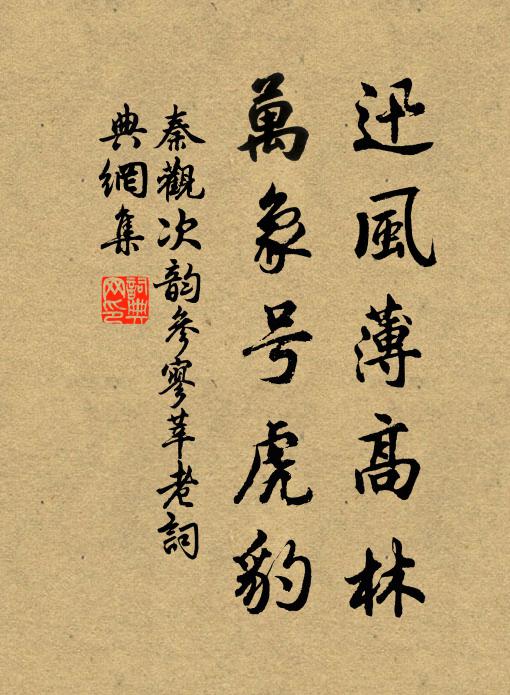 迅風薄高林
萬象号虎豹
秦觀次韵參寥莘老詞
典網集
詞典
网印